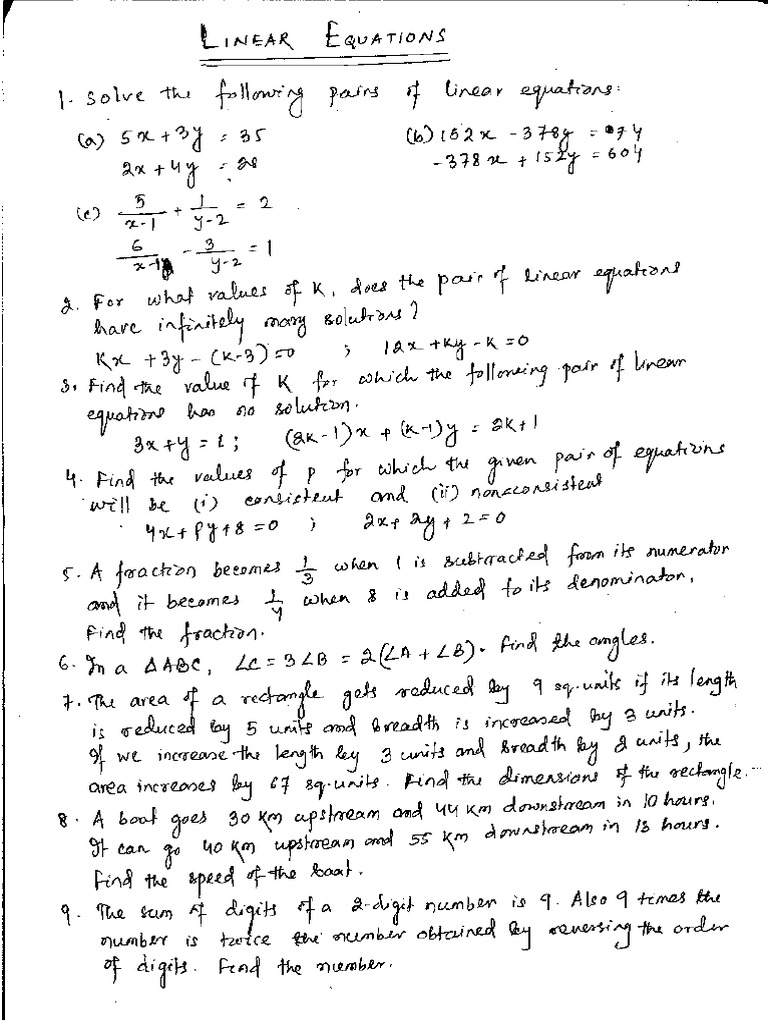 LINEAR EQUATIONS
1. Solve the following pairs of linear equations:
(a) 5x + 3y = 35 (b) 152x - 378y = 74
2x + 4y = 28 -378x + 152y = 604
(c) 5/(x-1) + 1/(y-2) = 2
6/(x-1) - 3/(y-2) = 1
2. For what values of K, does the pair of linear equations
have infinitely many solutions?
Kx + 3y - (K-3) = 0 ; 12x + Ky - K = 0
3. Find the value of K for which the following pair of linear
equations has no solution.
3x + y = 1 ; (2K-1)x + (K-1)y = 2K+1
4. Find the values of p for which the given pair of equations
will be (i) consistent and (ii) nonconsistent
4x + Py + 8 = 0 ; 2x + 2y + 2 = 0
5. A fraction becomes 1/3 when 1 is subtracted from its numerator
and it becomes 1/4 when 8 is added to its denominator.
Find the fraction.
6. In a ΔABC, ∠C = 3∠B = 2(∠A + ∠B). Find the angles.
7. The area of a rectangle gets reduced by 9 sq.units if its length
is reduced by 5 units and breadth is increased by 3 units.
If we increase the length by 3 units and breadth by 2 units, the
area increases by 67 sq.units. Find the dimensions of the rectangle.
8. A boat goes 30 Km upstream and 44 Km downstream in 10 hours.
It can go 40 Km upstream and 55 Km downstream in 13 hours.
Find the speed of the boat.
9. The sum of digits of a 2-digit number is 9. Also 9 times the
number is twice the number obtained by reversing the order
of digits. Find the number.